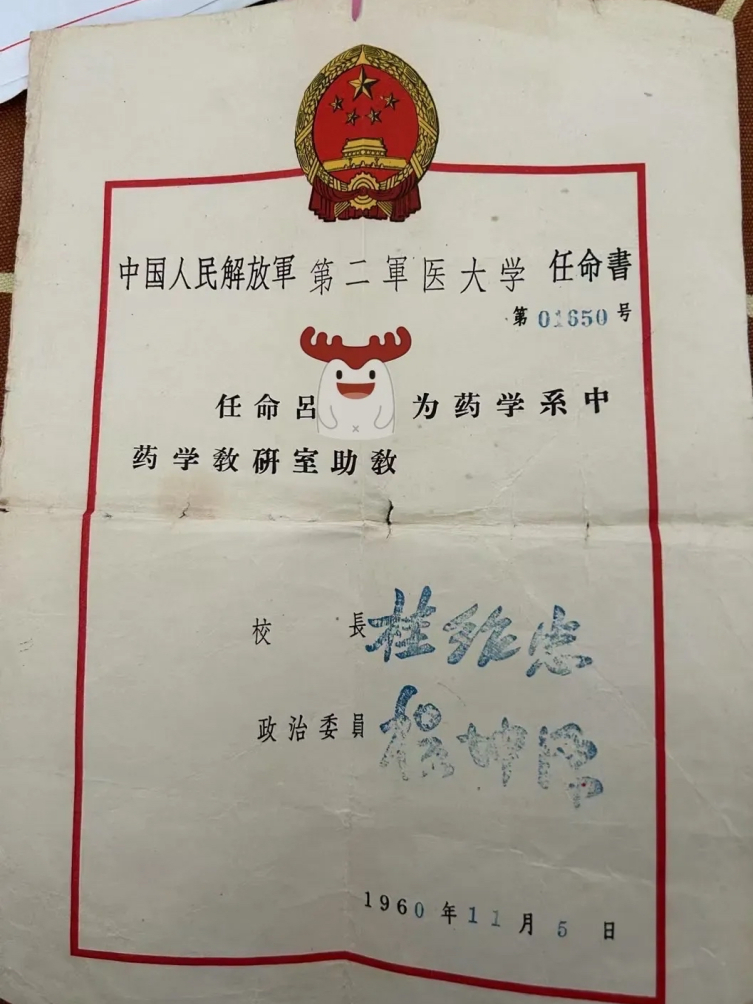 中国人民解放軍 第二軍医大学 任命書
第 01650 号
任命呂 为药学系中
药学教研室助教
校 長
政治委員
1960 年 11 月 5 日